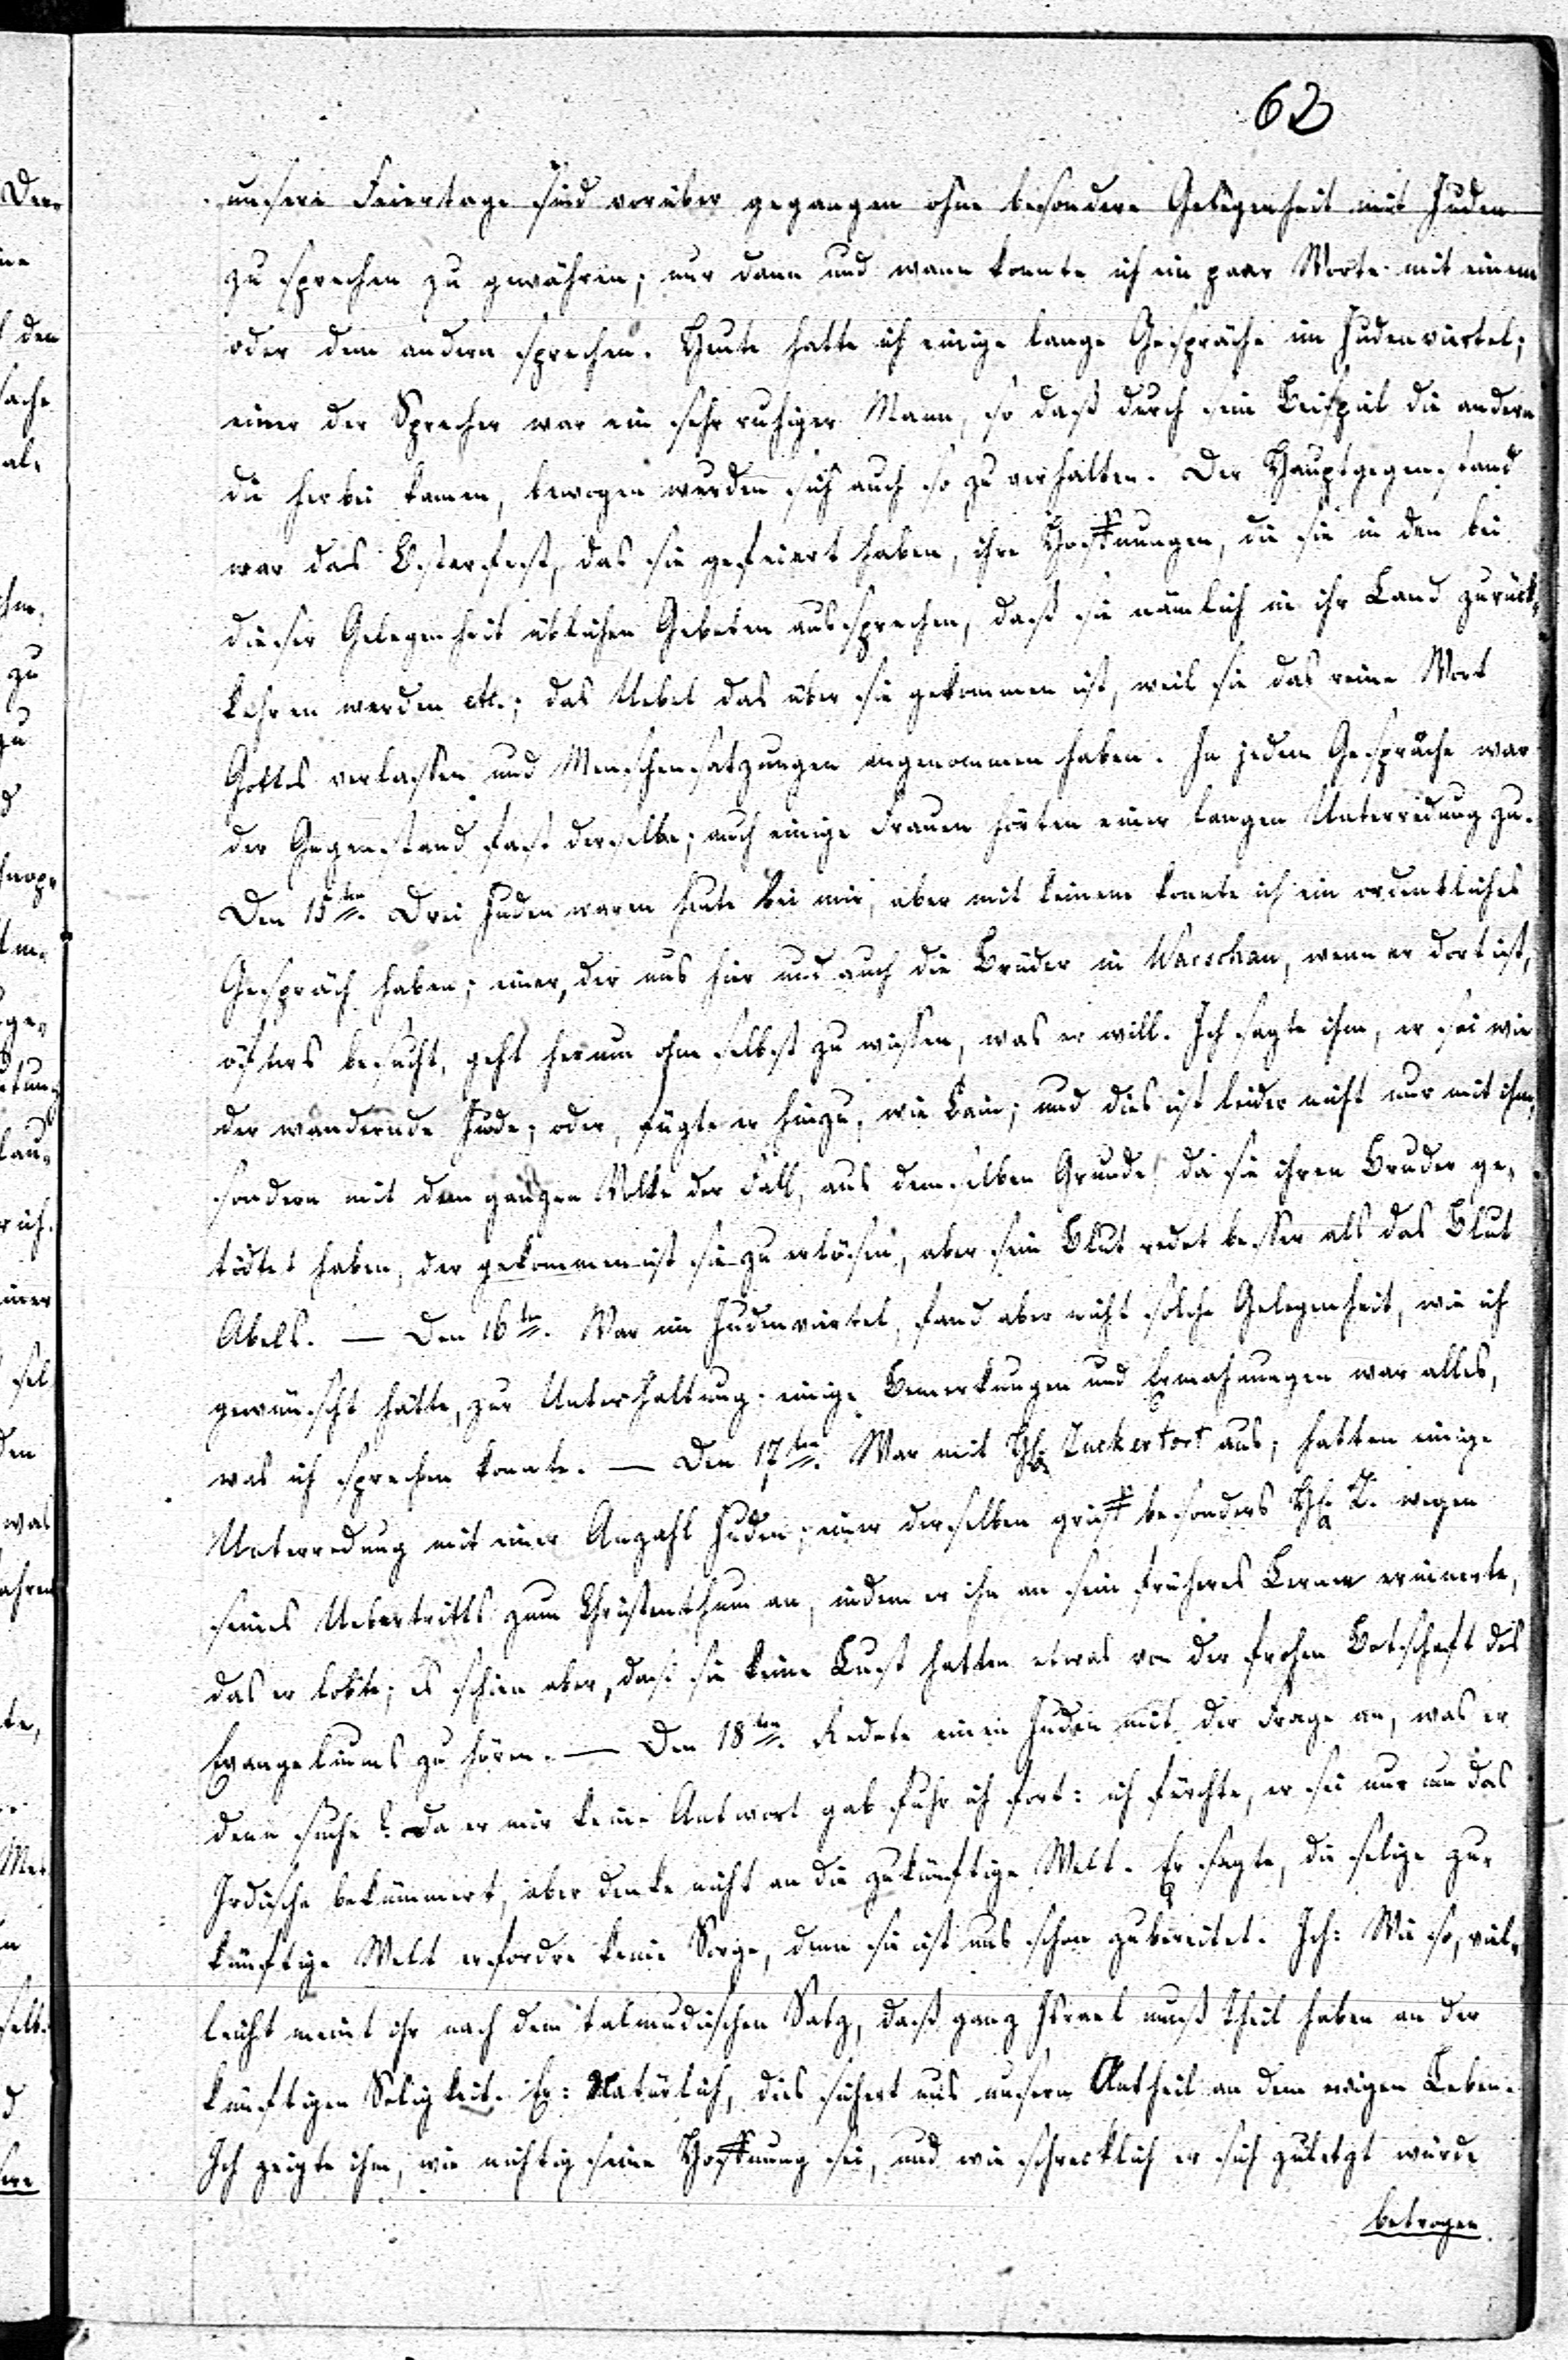 62
unsere Feiertage sind vorüber gegangen ohne besondere Gelegenheit mit Juden
zu sprechen zu gewähren; nur dann und wann konnte ich ein paar Worte mit einem
oder dem andern sprechen. Heute hatte ich einige lange Gespräche im Judenviertel;
einer der Sprecher war ein sehr ruhiger Mann, so daß durch sein Beispiel die andern
die herbei kamen, bewogen wurden sich auch so zu verhalten. Der Hauptgegenstand
war das Osterfest, das sie gefeiert haben, ihre Hoffnungen, die sie in den bei
dieser Gelegenheit üblichen Gebeten aussprechen, daß sie nämlich in ihr Land zurück-
kehren werden etc.; das Uebel das über sie gekommen ist, weil sie das reine Wort
Gottes verlassen und Menschensatzungen angenommen haben. In jedem Gespräche war
der Gegenstand fast derselbe; auch einige Frauen hörten einer langen Unterredung zu.
Den 15ten. Drei Juden waren heute bei mir, aber mit keinem konnte ich ein ordentliches
Gespräch haben; einer, der uns hier und auch die Brüder in Warschau, wenn er dort ist,
öfters besucht, geht herum ohne selbst zu wissen, was er will. Ich sagte ihm, er sei wie
der wandernde Jude; oder, fügte er hinzu, wie Cain; und dies ist leider nicht nur mit ihm,
sondern mit dem ganzen Volke der Fall, aus demselben Grunde da sie ihren Bruder ge-
tödtet haben, der gekommen ist sie zu erlösen, aber sein Blut redet besser als das Blut
Abels. — Den 16ten. War im Judenviertel, fand aber nicht solche Gelegenheit, wie ich
gewünscht hätte, zur Unterhaltung; einige Bemerkungen und Ermahnungen war alles,
was ich sprechen konnte. — Den 17ten. War mit H. Zuckertort aus; hatten einige
Unterredung mit einer Anzahl Juden; einer derselben griff besonders H. Z. wegen
seines Uebertritts zum Christenthum an, indem er ihn an sein früheres Lernen erinnerte,
das er lobte; es schien aber, daß sie keine Lust hatten etwas von der frohen Botschaft des
Evangeliums zu hören. — Den 18ten. Redete einen Juden mit der Frage an, was er
denn suche? Da er mir keine Antwort gab fuhr ich fort: ich fürchte, er sei nur um das
Irdische bekümmert, aber denke nicht an die zukünftige Welt. Er sagte, die selige zu-
künftige Welt erfordre keine Sorge, denn sie ist uns schon zubereitet. Ich: Wie so, viel-
leicht meint ihr nach dem talmudischen Satz, daß ganz Israel muß Theil haben an der
künftigen Seligkeit. Er: Natürlich, dies sichert uns unsern Antheil an dem ewigen Leben.
Ich zeigte ihm, wie nichtig seine Hoffnung sei, und wie schrecklich er sich zuletzt würde
betrogen